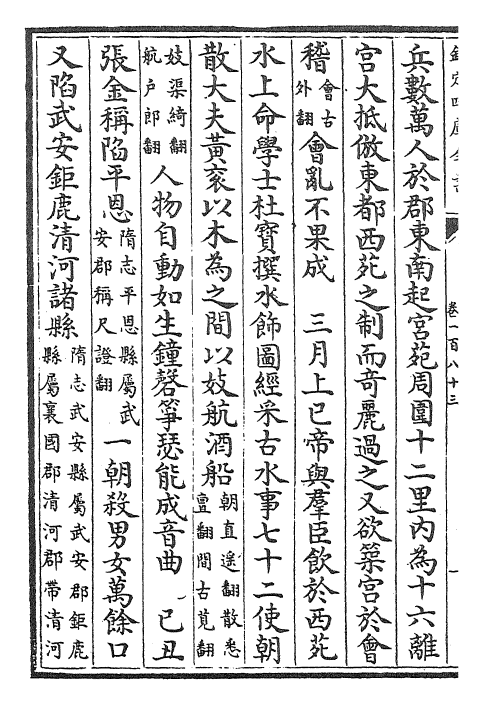 欽定四庫全書
卷一百八十三
兵數萬人於郡東南起宮苑周圍十二里內為十六離
宮大抵倣東都西苑之制而竒麗過之又欲築宮於會
稽會古外翻會亂不果成 三月上巳帝與羣臣飲於西苑
水上命學士杜寶撰水飾圖經采古水事七十二使朝
散大夫黃衮以木為之間以妓航酒船朝直遥翻散悉亶翻間古莧翻
妓渠綺翻航户郎翻人物自動如生鐘磬箏瑟能成音曲 己丑
張金稱陷平恩隋志平恩縣屬武安郡稱尺證翻一朝殺男女萬餘口
又陷武安鉅鹿清河諸縣隋志武安縣屬武安郡鉅鹿縣屬襄國郡清河郡帶清河